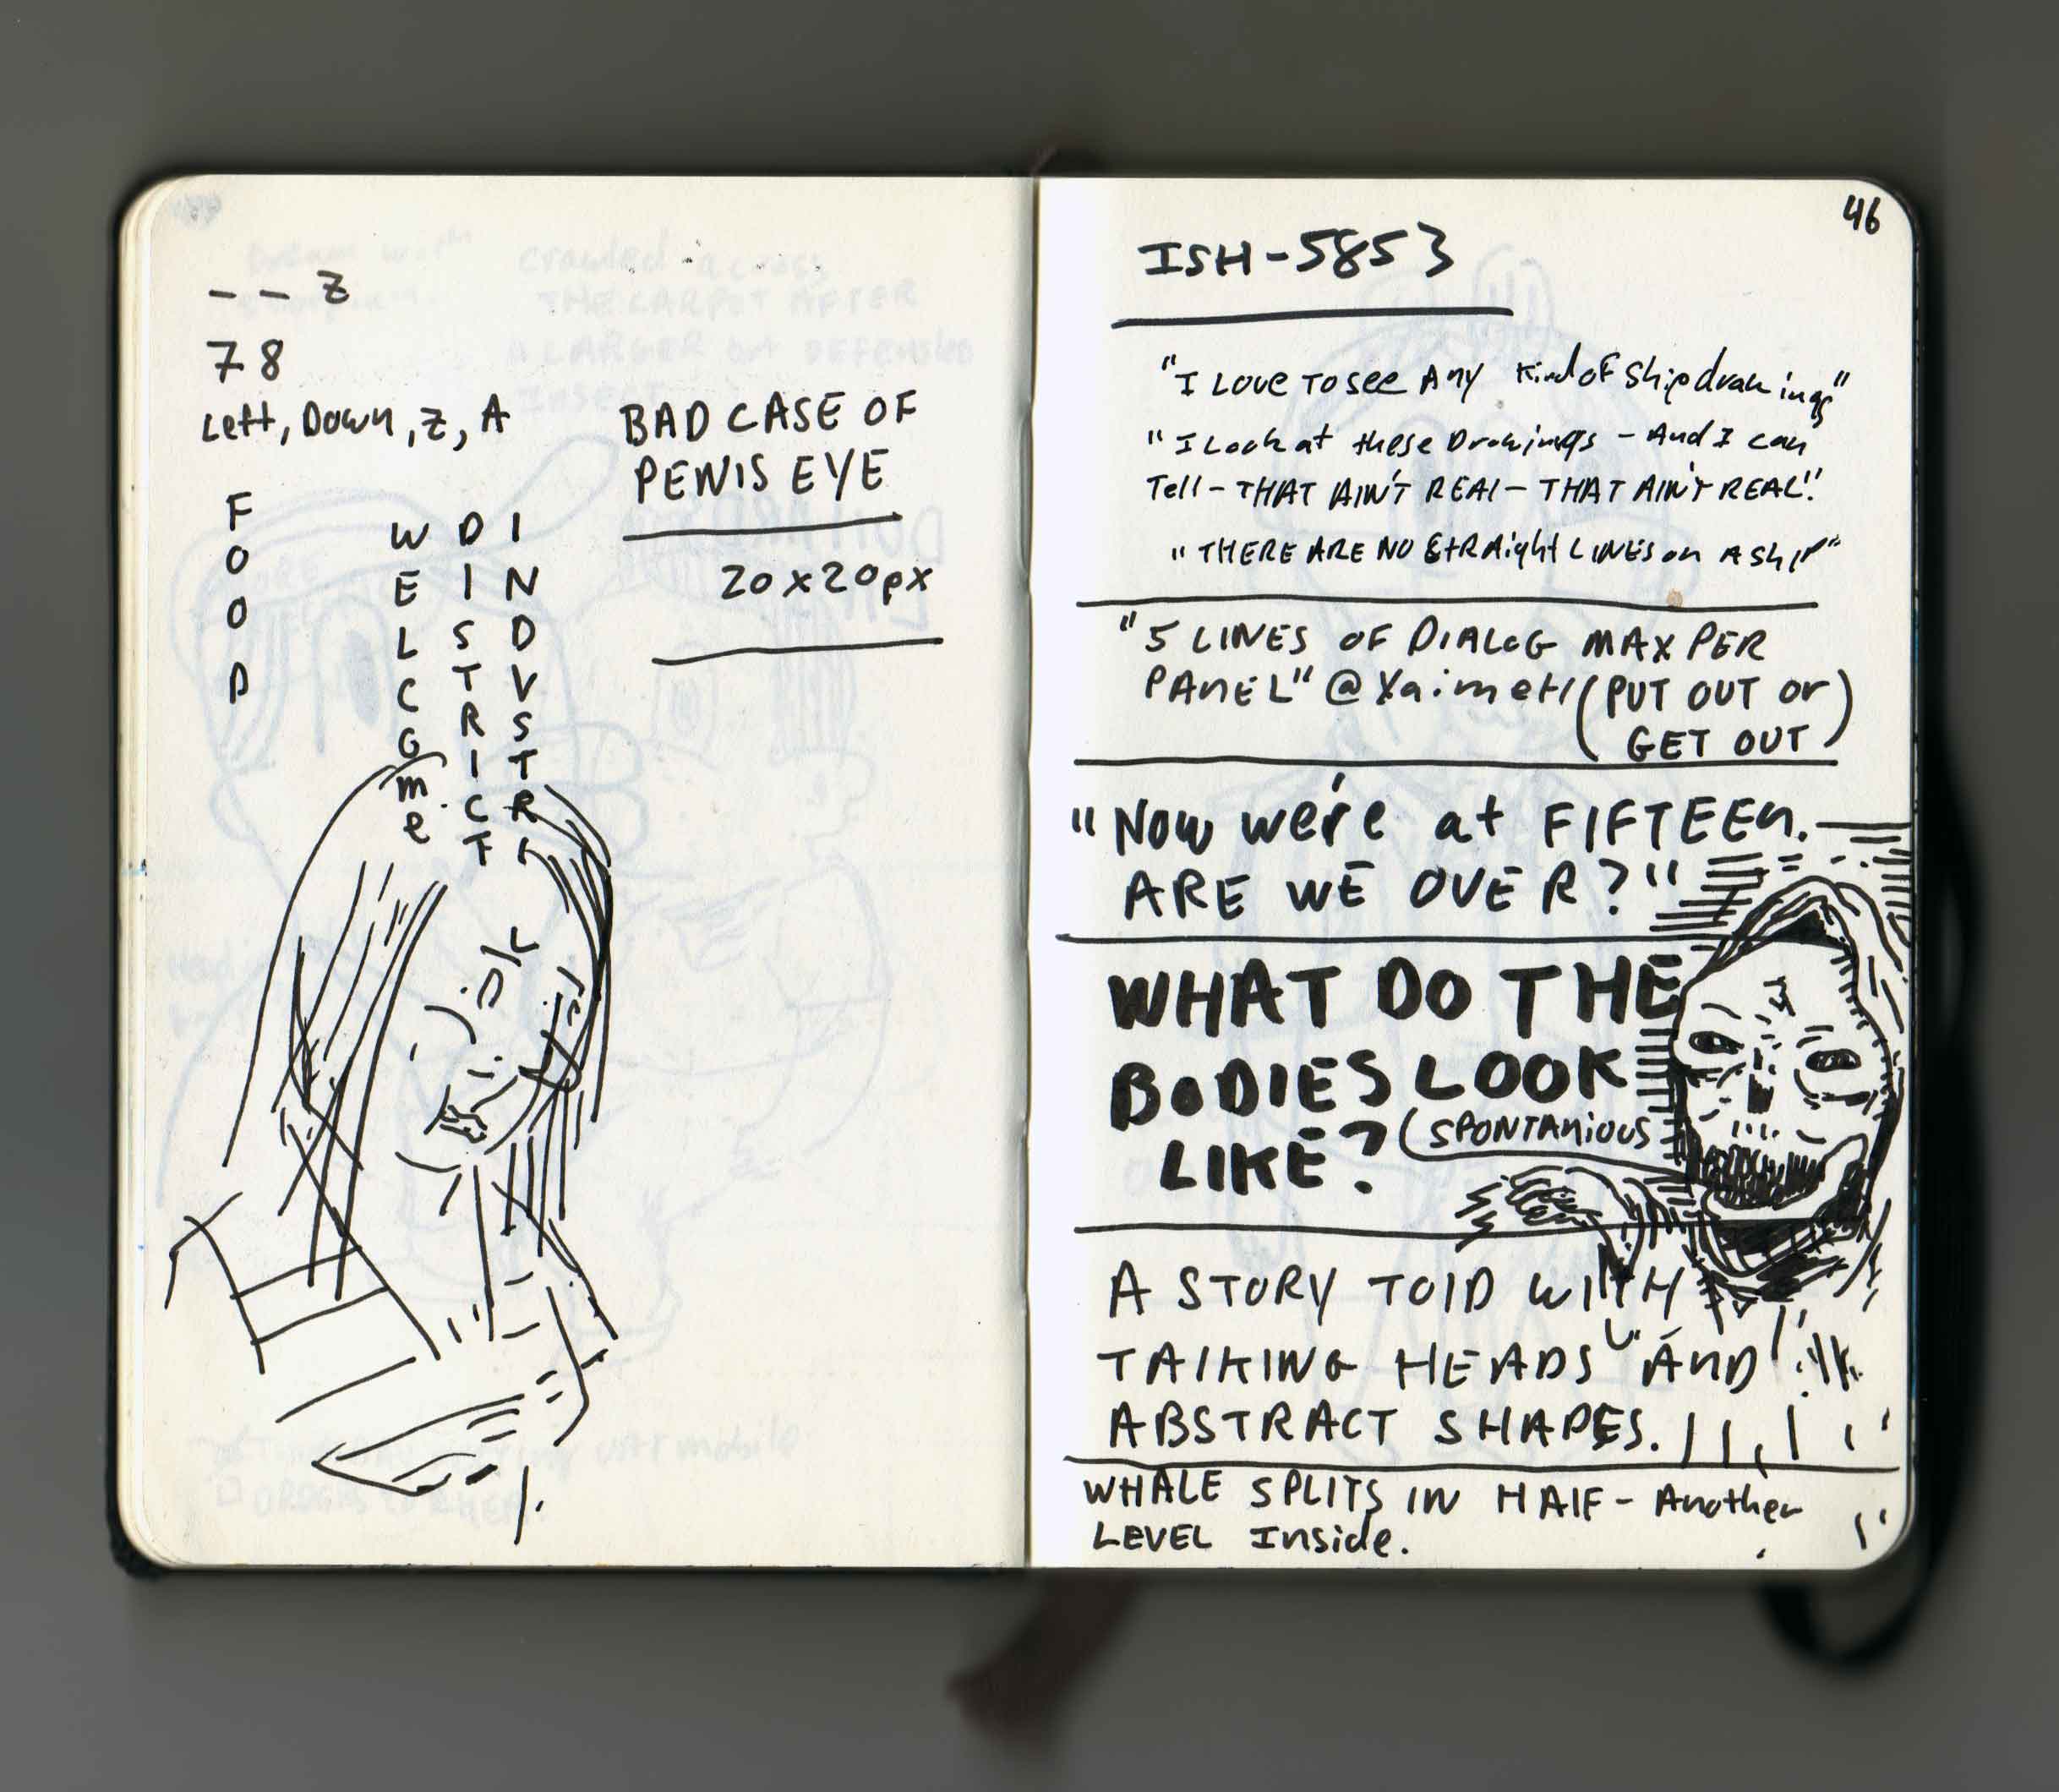 – – Z
78
Left, Down, Z, A
FOOD
WELCOme
DISTRICT
INDVSTRI
BAD CASE OF
PENIS EYE
20x20px
46
ISH-5853
"I Love To see Any Kind oF Ship drawings"
"I Look at these Drawings – And I can
Tell – THAT AIN'T REAl – THAT AIN'T REAL."
"THERE ARE NO StRAight LINES on A ship"
"5 LINES OF DIALOG MAX PER
PAnEL" @Xaimeh (PUT OUT or
GET OUT)
"Now we're at FIFTEEn.
ARE WE OVER?"
WHAT DO THE
BODIES LOOK
LIKE? (SPONTAniOUS
A STORY TOlD WITH
TAlKING HEADS AnD
ABSTRACT SHAPES.
WHALE SPLITS IN HAlF – Another
LEVEL Inside.